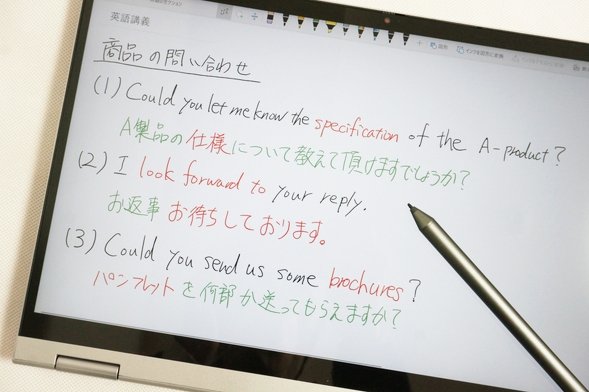 英語講義
商品の問い合わせ
(1) Could you let me know the specification of the A-product?
A製品の仕様について教えて頂けますでしょうか?
(2) I look forward to your reply.
お返事お待ちしております。
(3) Could you send us some brochures?
パンフレットを何部か送ってもらえますか?